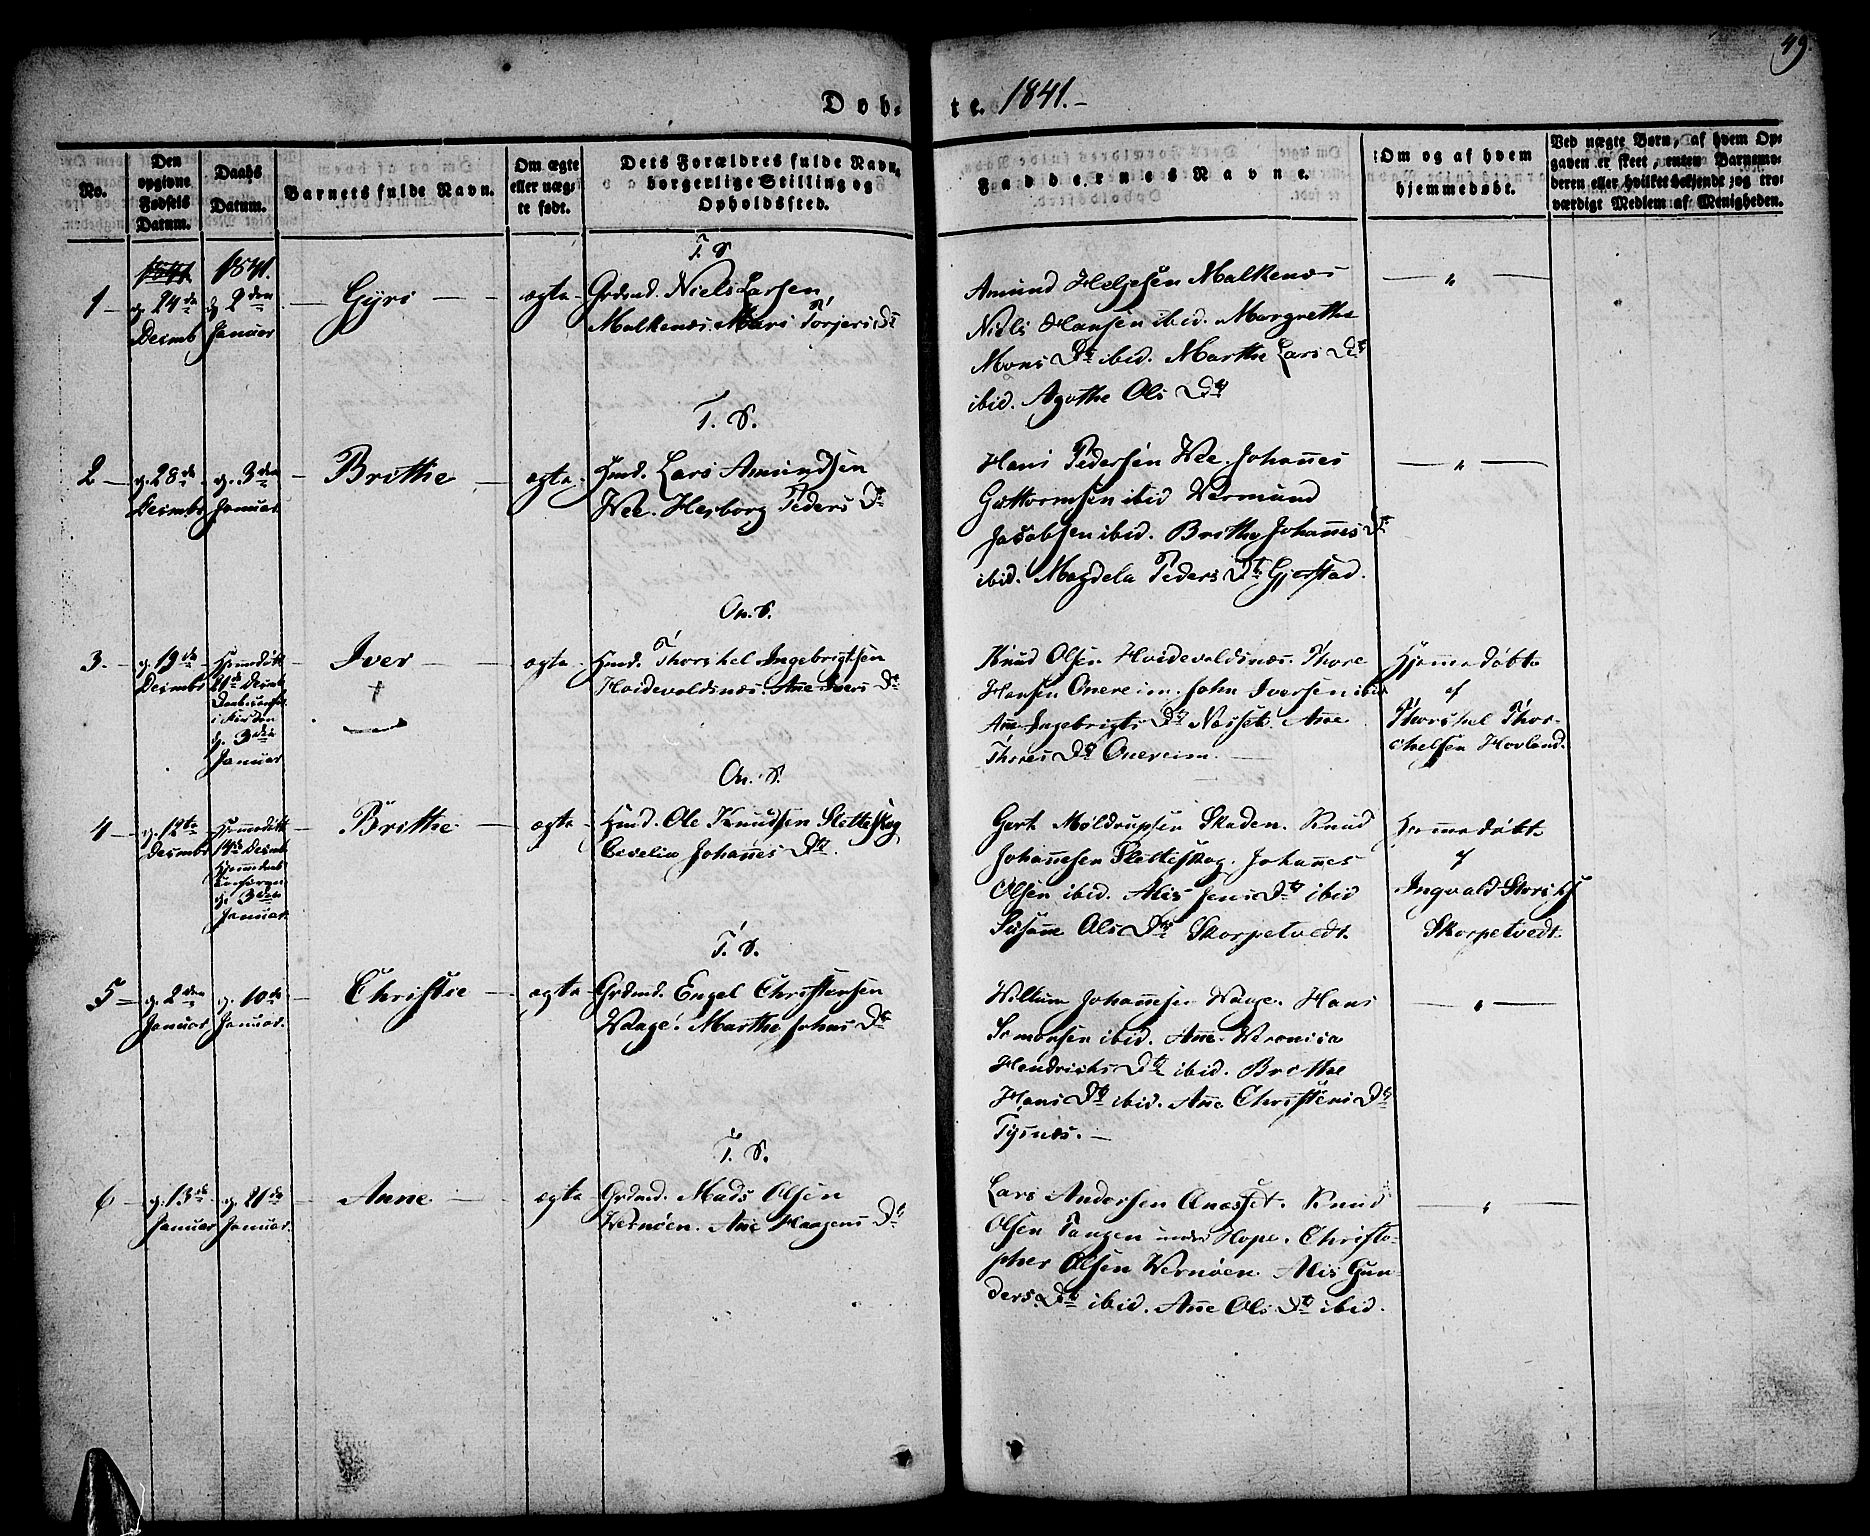 49.
Døb- te. 1841.-
No.
Den opgivne Fødsels Datum.
Daabs Datum.
Barnets fulde Navn.
Om ægte eller nægte født.
Dets Forældres fulde Navn, borgerlige Stilling og Opholdssted.
Faddernes Navne.
Om og af hvem hjemmedøbt.
Ved uægte Børn, af hvem Opgaven er skeet, enten Barnemoderen eller hvilket bekjendt og troværdigt Medlem af Menigheden.
T. S.
1841. 1841.
1 - d. 24de Decmb
d. 2den Januar
- Gyri -
ægte
Grdmd. Niels Larsen
Malkenæs. Mari Torjers Dtr
Amund Helgesen Malkenæs
Niels Hansen ibid. Margrethe
Mons Dtr ibid. Marthe Lars Dtr
ibid. Agathe Ols Dtr
- " -
T. S.
2 - d. 28de Decmbr
d. 3den Januar
- Brithe -
ægte
Hmd. Lars Amundsen
Wee. Herborg Peders Dtr
Hans Pedersen Wee. Johannes
Guttormsen ibid Wermund
Jacobsen ibid. Brithe Johannes Dtr
ibid. Magdela Peders Dtr Gjerstad.
- " -
On. S.
3. - d. 19de Decmbr
Hjemmedøbt
21de Decmb
i Kirken
d. 3die
Januar
Iver -
+
ægte
Hmd. Thorchel Ingebrigtsen
Hoidevoldsnæs. Ane Ivers Dtr
Knud Olsen Hoidevoldsnæs. Thore
Hansen Onereim. John Iversen ibid
Ane Ingebrigts Dtr Næsset. Ane
Thores Dtr Onereim.
Hjemmedøbt
af
Thorchel Thor-
chelsen Hovland.
On. S.
4 - d. 12te Decmbr
Hjemmedøbt
14de Decmb
d. 3die
Januar.
- Brithe -
ægte
Hmd. Ole Knudsen Sletteskog
Cecelia Johannes Dtr.
Gert Moldrupsen Skaden. Knud
Johannesen Sletteskog. Johannes
Olsen ibid. Alis Jens Dtr ibid
Susann Ols Dtr Skorpetvedt.
Hjemmedøbt
af
Ingvald
Skorpetvedt.
T. S.
5 - d. 2den Januar
d. 10de Januar.
- Christie -
ægte
Grdmd. Engel Christensen
Waage. Marthe Johans Dtr
Willum Johannesen Waage. Hans
Simonsen ibid. Ane Veronica
Hendrichs Dtr ibid. Brithe
Hans Dtr ibid. Ane Christens Dtr
Tysnæs. -
- " -
T. S.
6 - d. 13de Januar
d. 21de Januar.
- Anne -
ægte
Grdmd. Mads Olsen
Wernøen. Ane Haagens Dtr
Lars Andersen Onasset. Knud
Olsen Tangen under Hope. Christo-
pher Olsen Wernøen. Alis Gun-
ders Dtr ibid. Ane Ols Dtr ibid.
- " -